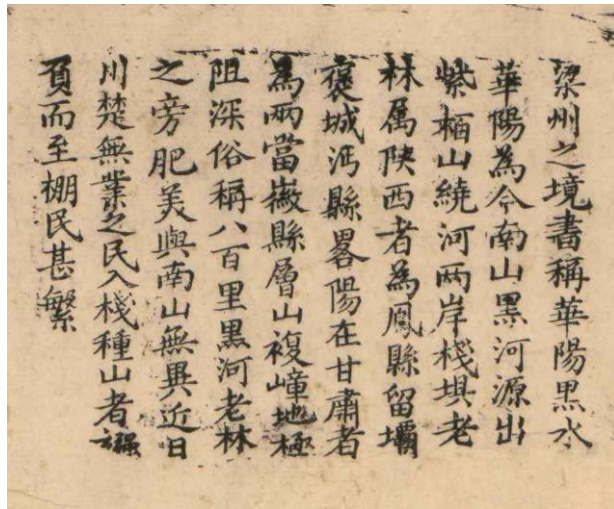 梁州之境書稱華陽黑水
華陽為今南山黑河源出
紫栢山繞河两岸棧垻老
林属陝西者為鳳縣留壩
褒城沔縣畧陽在甘肅者
為兩當徽縣層山複嶂地極
阻深俗稱八百里黑河老林
之旁肥美與南山無異近日
川楚無業之民入棧種山者襁
負而至棚民甚繁